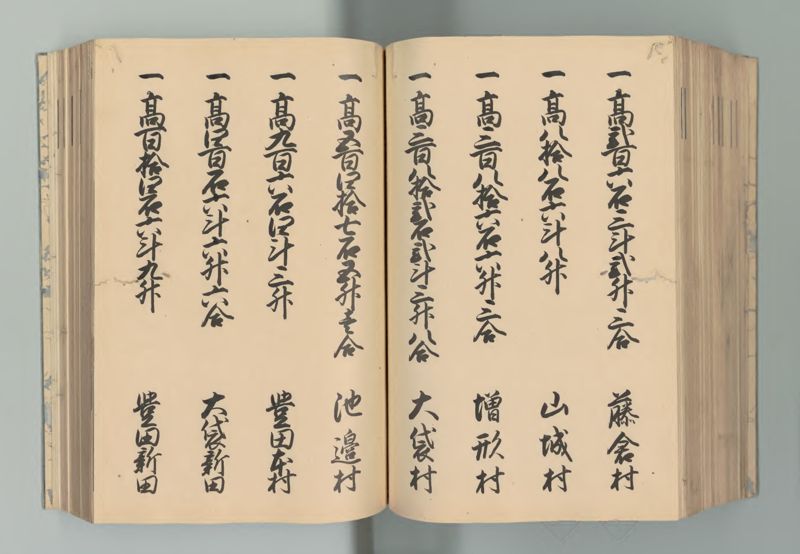 一 高弐百六石三斗弐升三合 藤倉村
一 高八拾八石六斗八升 山城村
一 高三百八拾六石六升三合 増形村
一 高三百八拾弐石弐斗三升八合 大袋村
一 高五百四拾七石五升壱合 池邉村
一 高九百六石四斗三升 豊田本村
一 高四百石六斗六升六合 大袋新田
一 高百拾四石六斗九升 豊田新田